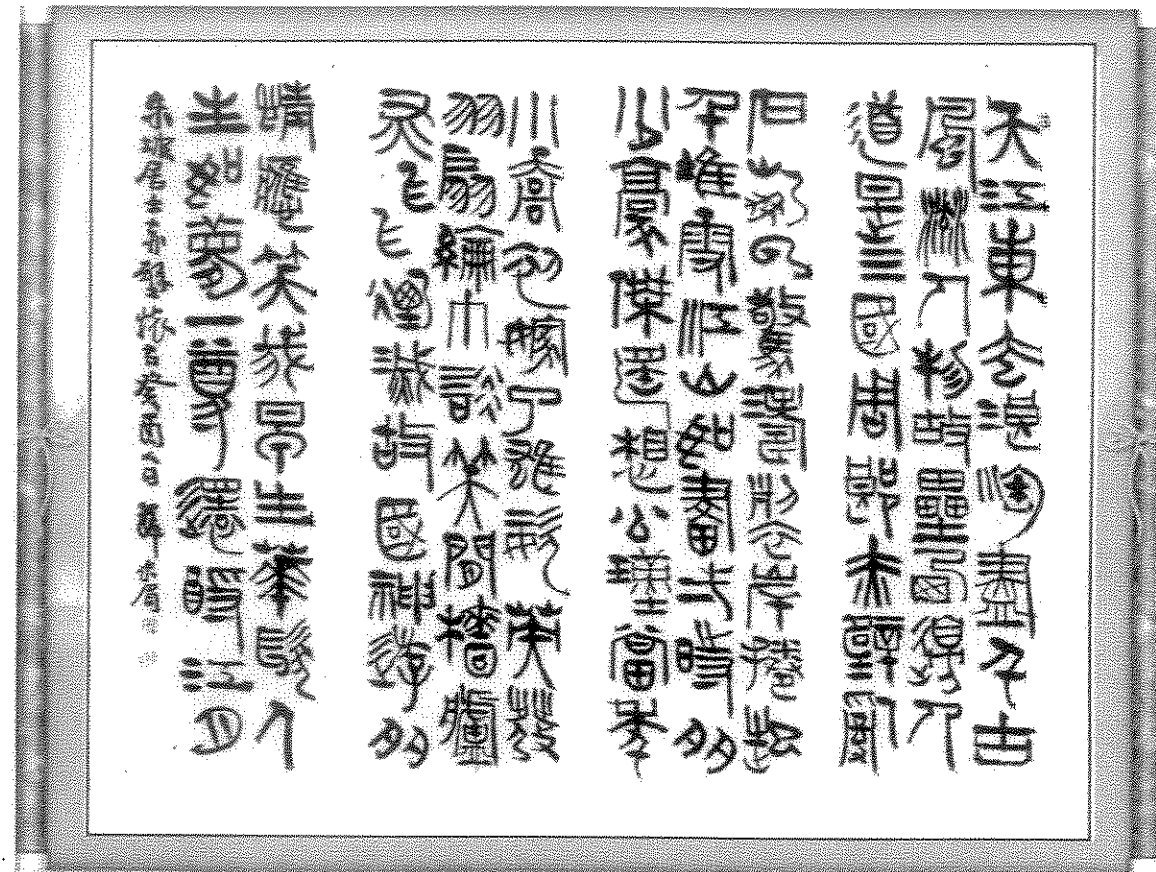 大江東去浪淘盡千古
風流人物故壘西邊人
道是三國周郎赤壁亂
石崩雲驚濤裂岸捲起
千堆雪江山如畫一時多
少豪傑遙想公瑾當年
小喬初嫁了雄姿英發
羽扇綸巾談笑間檣艣
灰飛煙滅故國神遊多
情應笑我早生華髮人
生如夢一尊還酹江月
東坡居士赤壁懷古